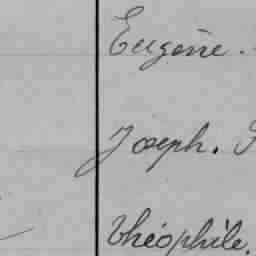 Eugène.
Joseph.
Théophile.